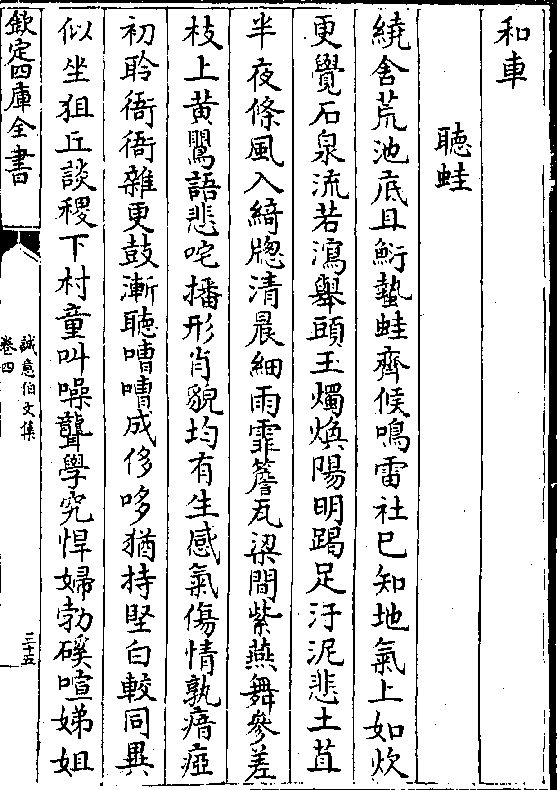 和車
聽蛙
繞舍荒池底且䱓蟄蛙齊候鳴雷社已知地氣上如炊
更覺石泉流若瀉舉頭玉燭煥陽明跼足汙泥悲土苴
半夜條風入綺牎清晨細雨霏簷瓦梁間紫燕舞參差
枝上黄鸎語悲咤播形肖貌均有生感氣傷情孰瘖瘂
初聆衙衙雜更鼓漸聽嘈嘈成侈哆猶持堅白較同異
似坐狙丘談稷下村童叫噪聾學究悍婦勃磎喧娣姐
欽定四庫全書
誠意伯文集
卷四
三十五